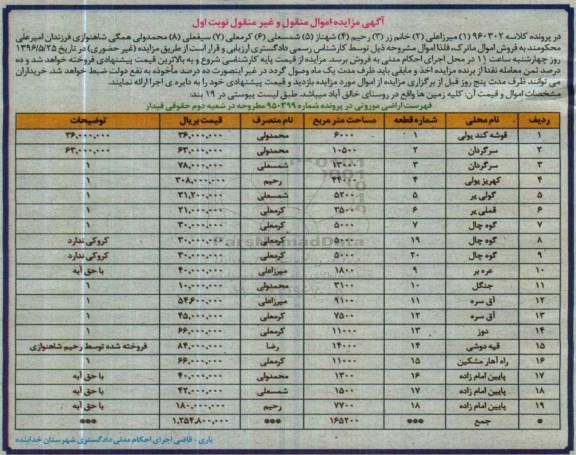 آگهی مزایده اموال منقول و غیر منقول نوبت اول
در پرونده کلاسه ۹۶۰۳۰۲ (۱) میرزاعلی (۲) خانم زر (۳) رحیم (۴) شهناز (۵) شمسعلی (۶) کرمعلی (۷) سیفعلی (۸) محمدولی همگی شاهنوازی فرزندان امیرعلی
محکومند به فروش اموال ماترک، فلذا اموال مشروحه ذیل توسط کارشناس رسمی دادگستری ارزیابی و قرار است از طریق مزایده (غیر حضوری) در تاریخ ۱۳۹۶/۵/۲۵
روز چهارشنبه ساعت ۱۱ در محل اجرای احکام مدنی به فروش برسد. مزایده از قیمت پایه کارشناسی شروع و به بالاترین قیمت پیشنهادی فروخته خواهد شد و ده
درصد ثمن معامله نقدا از برنده مزایده اخذ و مابقی باید ظرف مدت یک ماه وصول گردد در غیر اینصورت ده درصد مأخوذه به نفع دولت ضبط خواهد شد. خریداران
می توانند ظرف مدت پنج روز قبل از برگزاری مزایده از اموال مورد مزایده بازدید و قیمت پیشنهادی خود را به دایره ی اجرا ارائه نمایند.
مشخصات اموال و قیمت آن: کلیه زمین ها واقع در روستای خالق آباد میباشد. طبق لیست پیوستی در ۱۹ بند:
فهرست اراضی موروثی در پرونده شماره ۹۵۰۳۹۹ مطروحه در شعبه دوم حقوقی قیدار
ردیف نام محلی شماره قطعه مساحت متر مربع نام متصرف قیمت بریال توضیحات
۱ قوشه کند یولی ۱ ۶۰۰۰ محمدولی ۳۶,۰۰۰,۰۰۰ ۳۶,۰۰۰,۰۰۰
۲ سرگردان ۲ ۱۰۵۰۰ محمدولی ۶۳,۰۰۰,۰۰۰ ۶۳,۰۰۰,۰۰۰
۳ سرگردان ۳ ۱۳۰۰۰ شمسعلی ۷۸,۰۰۰,۰۰۰ ۱
۴ کهریز یولی ۴ ۴۴۰۰۰ رحیم ۳۰۸,۰۰۰,۰۰۰ ۱
۵ گولی یر ۵ ۵۲۰۰ شمسعلی ۳۱,۲۰۰,۰۰۰ ۱
۶ قملی یر ۶ ۳۵۰۰ کرمعلی ۲۱,۰۰۰,۰۰۰ ۱
۷ گوه چال ۷ ۵۰۰۰ کرمعلی ۳۰,۰۰۰,۰۰۰ ۱
۸ گوه چال ۱۹ ۵۰۰۰ کرمعلی ۳۰,۰۰۰,۰۰۰ کروکی ندارد
۹ گوه چال ۲۰ ۵۰۰۰ کرمعلی ۳۰,۰۰۰,۰۰۰ کروکی ندارد
۱۰ عره یر ۹ ۱۸۰۰ میرزاعلی ۴۰,۰۰۰,۰۰۰ با حق آبه
۱۱ جنگل ۱۰ ۳۱۰۰ محمدولی ۱۰,۰۰۰,۰۰۰ ۱
۱۲ آق سره ۱۱ ۹۱۰۰ میرزاعلی ۵۴,۶۰۰,۰۰۰ ۱
۱۳ آق سره ۱۲ ۷۵۰۰ کرمعلی ۴۵,۰۰۰,۰۰۰ ۱
۱۴ دوز ۱۳ ۱۱۰۰۰ کرمعلی ۶۶,۰۰۰,۰۰۰ ۱
۱۵ قیه دوشی ۱۴ ۱۴۰۰۰ رضا ۸۴,۰۰۰,۰۰۰ فروخته شده توسط رحیم شاهنوازی
۱۶ راه آهار مشکین ۱۵ ۱۱۰۰۰ کرمعلی ۶۶,۰۰۰,۰۰۰ ۱
۱۷ پایین امام زاده ۱۶ ۱۳۰۰ محمدولی ۴۰,۰۰۰,۰۰۰ با حق آبه
۱۸ پایین امام زاده ۱۷ ۱۵۰۰ شمسعلی ۴۲,۰۰۰,۰۰۰ با حق آبه
۱۹ پایین امام زاده ۱۸ ۷۷۰۰ رحیم ۱۸۰,۰۰۰,۰۰۰ با حق آبه
* جمع *** ۱۶۵۲۰۰ *** ۱,۲۵۴,۸۰۰,۰۰۰ ***
یاری - قاضی اجرای احکام مدنی دادگستری شهرستان خدابنده